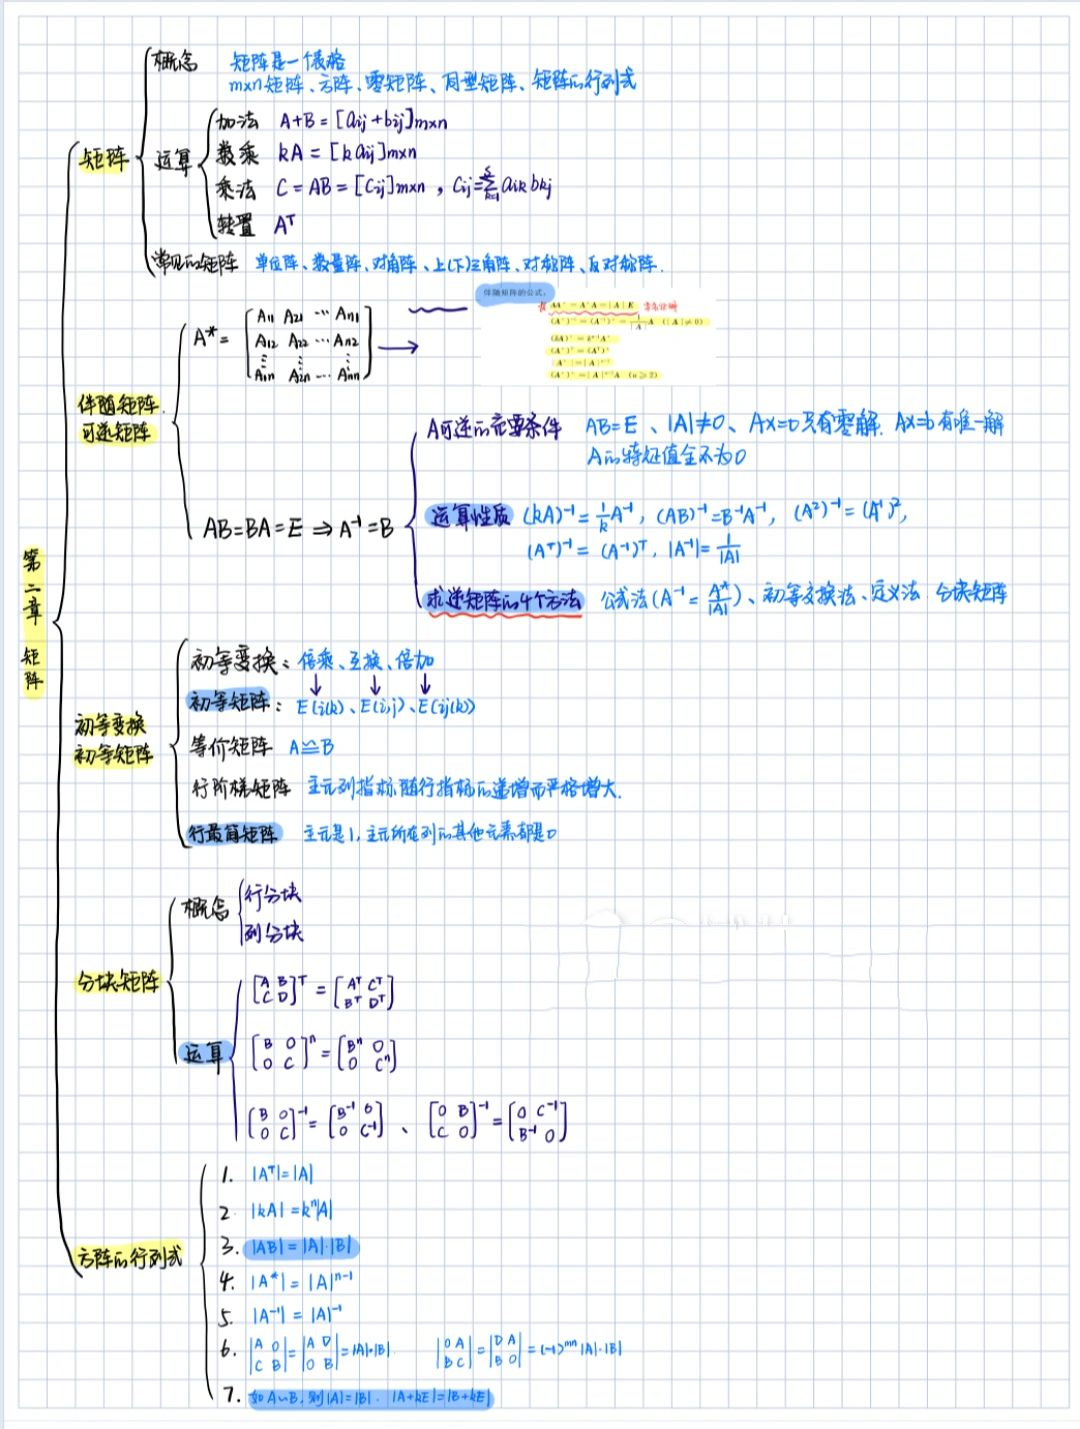 第二章 矩阵
矩阵
概念 矩阵是一个表格
m×n矩阵、方阵、零矩阵、同型矩阵、矩阵的行列式
运算
加法 A+B=[aij+bij]m×n
数乘 kA=[kaij]m×n
乘法 C=AB=[Cij]m×n，Cij=∑aikbkj
转置 Aᵀ
常见的矩阵 单位阵、数量阵、对角阵、上(下)三角阵、对称阵、反对称阵.
伴随矩阵.
可逆矩阵
A*= [A11 A21 ⋯ An1
A12 A22 ⋯ An2
⋮ ⋮ ⋮
A1n A2n ⋯ Ann]
伴随矩阵的公式:
AA*=A*A=|A|E
(A*)⁻¹=(A⁻¹)*=1/|A| A (|A|≠0)
(kA)*=kⁿ⁻¹A*
(A*)ᵀ=(Aᵀ)*
|A*|=|A|ⁿ⁻¹
(A*)*=|A|ⁿ⁻²A (n≥2)
AB=BA=E ⇒ A⁻¹=B
A可逆的充要条件 AB=E、|A|≠0、Ax=0只有零解. Ax=b有唯一解
A的特征值全不为0
运算性质 (kA)⁻¹=1/k A⁻¹, (AB)⁻¹=B⁻¹A⁻¹, (A²)⁻¹=(A⁻¹)²,
(Aᵀ)⁻¹=(A⁻¹)ᵀ, |A⁻¹|=1/|A|
求逆矩阵的4个方法 公式法(A⁻¹=A*/|A|)、初等变换法、定义法 分块矩阵
初等变换
初等矩阵
初等变换: 倍乘、互换、倍加
初等矩阵: E(i(k))、E(i,j)、E(ij(k))
等价矩阵 A≅B
行阶梯矩阵 主元列指标随行指标的递增而严格增大.
行最简矩阵 主元是1,主元所在列的其他元素都是0
分块矩阵
概念
行分块
列分块
运算
[A B
C D]ᵀ=[Aᵀ Cᵀ
Bᵀ Dᵀ]
[B O
O C]ⁿ=[Bⁿ O
O Cⁿ]
[B O
O C]⁻¹=[B⁻¹ O
O C⁻¹]、[O B
C O]⁻¹=[O C⁻¹
B⁻¹ O]
方阵的行列式
1. |Aᵀ|=|A|
2. |kA|=kⁿ|A|
3. |AB|=|A|·|B|
4. |A*|=|A|ⁿ⁻¹
5. |A⁻¹|=|A|⁻¹
6. |A O
C B|=|A D
O B|=|A|·|B| |O A
B C|=|D A
B O|=(-1)ᵐⁿ|A|·|B|
7. 如A∽B,则|A|=|B|. |A+kE|=|B+kE|